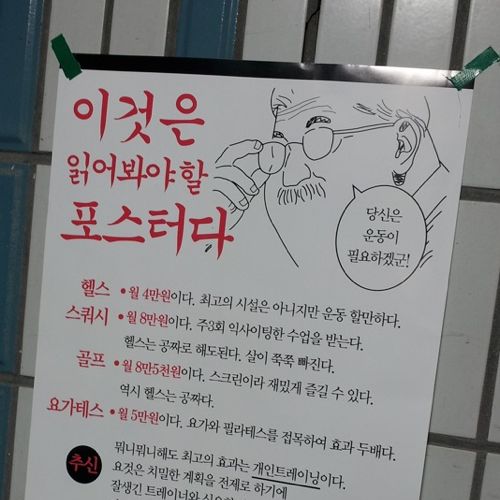 이것은
읽어봐야할
포스터다
당신은
운동이
필요하겠군!
헬스 • 월 4만원이다. 최고의 시설은 아니지만 운동 할만하다.
스쿼시 • 월 8만원이다. 주3회 익사이팅한 수업을 받는다.
헬스는 공짜로 해도된다. 살이 쭉쭉 빠진다.
골프 • 월 8만 5천원이다. 스크린이라 재밌게 즐길 수 있다.
역시 헬스는 공짜다.
요가테스 • 월 5만원이다. 요가와 필라테스를 접목하여 효과 두배다.
추신
뭐니뭐니해도 최고의 효과는 개인트레이닝이다.
요것은 치밀한 계획을 전제로 하기에
잘생긴 트레이너와